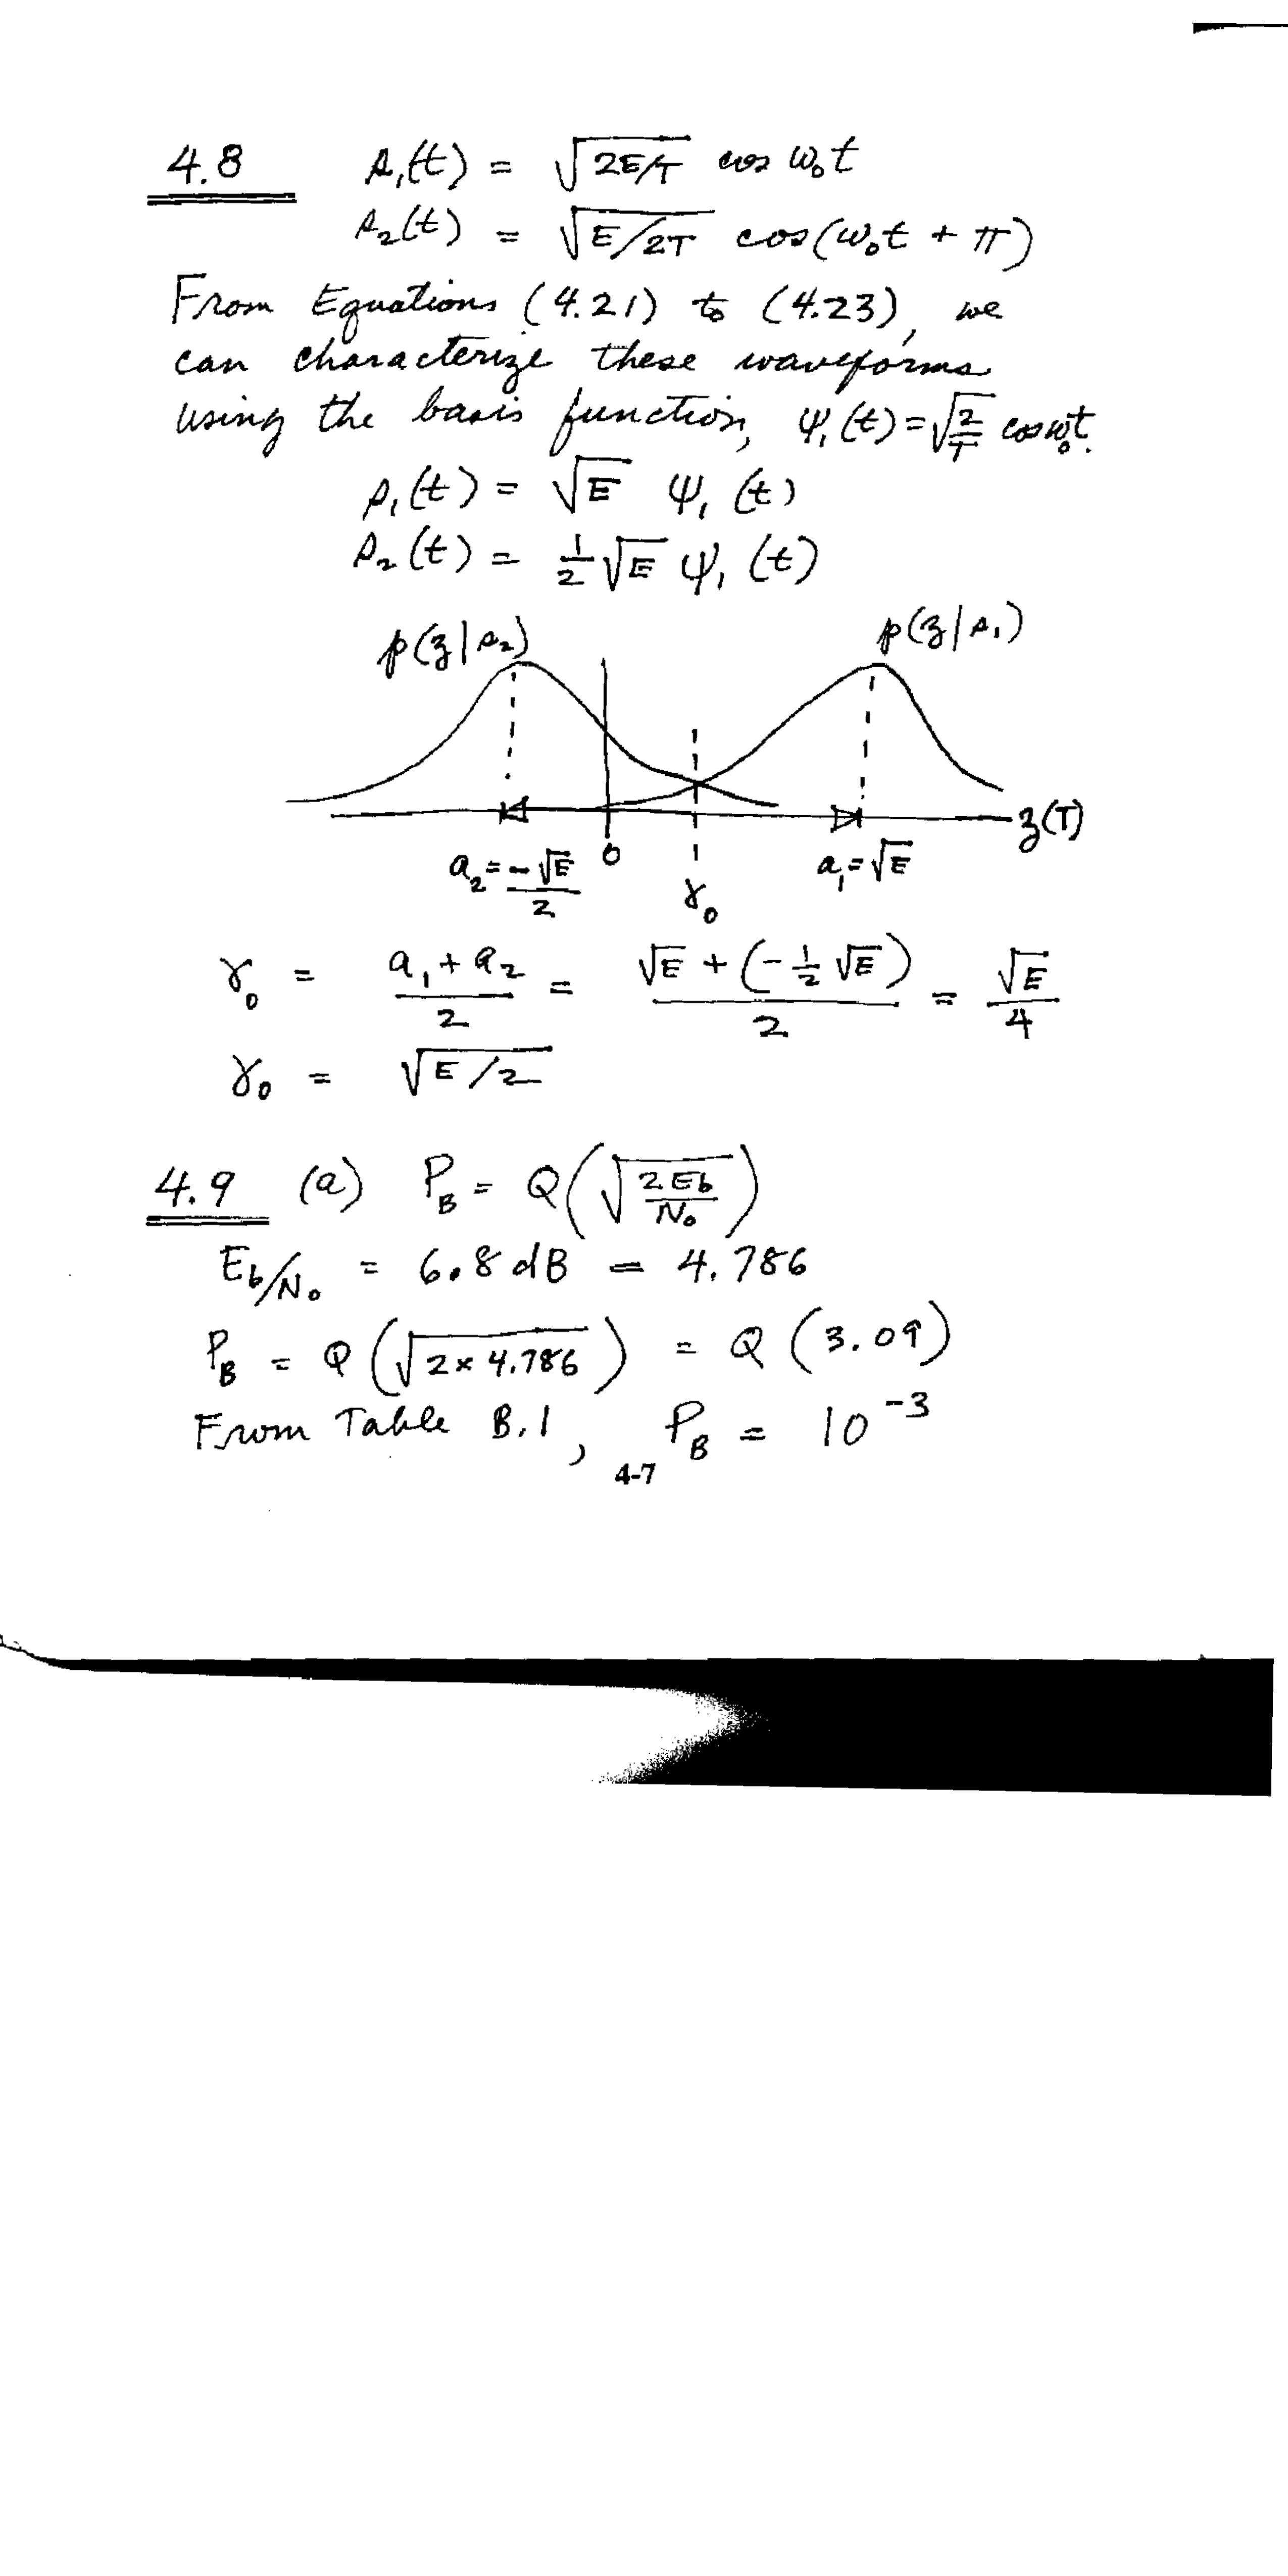 4.8 s₁(t) = √2E/T cos ω₀t
s₂(t) = √E/2T cos(ω₀t + π)
From Equations (4.21) to (4.23), we
can characterize these waveforms
using the basis function, ψ₁(t) = √2/T cos ω₀t.
s₁(t) = √E ψ₁(t)
s₂(t) = 1/2 √E ψ₁(t)
p(z|s₂) p(z|s₁)
z(T)
a₂ = -√E/2 0 γ₀ a₁ = √E
γ₀ = (a₁ + a₂)/2 = (√E + (-1/2 √E))/2 = √E/4
γ₀ = √E/2
4.9 (a) P_B = Q(√2Eb/N₀)
Eb/N₀ = 6.8 dB = 4.786
P_B = Q(√2×4.786) = Q(3.09)
From Table B.1, P_B = 10⁻³
4-7